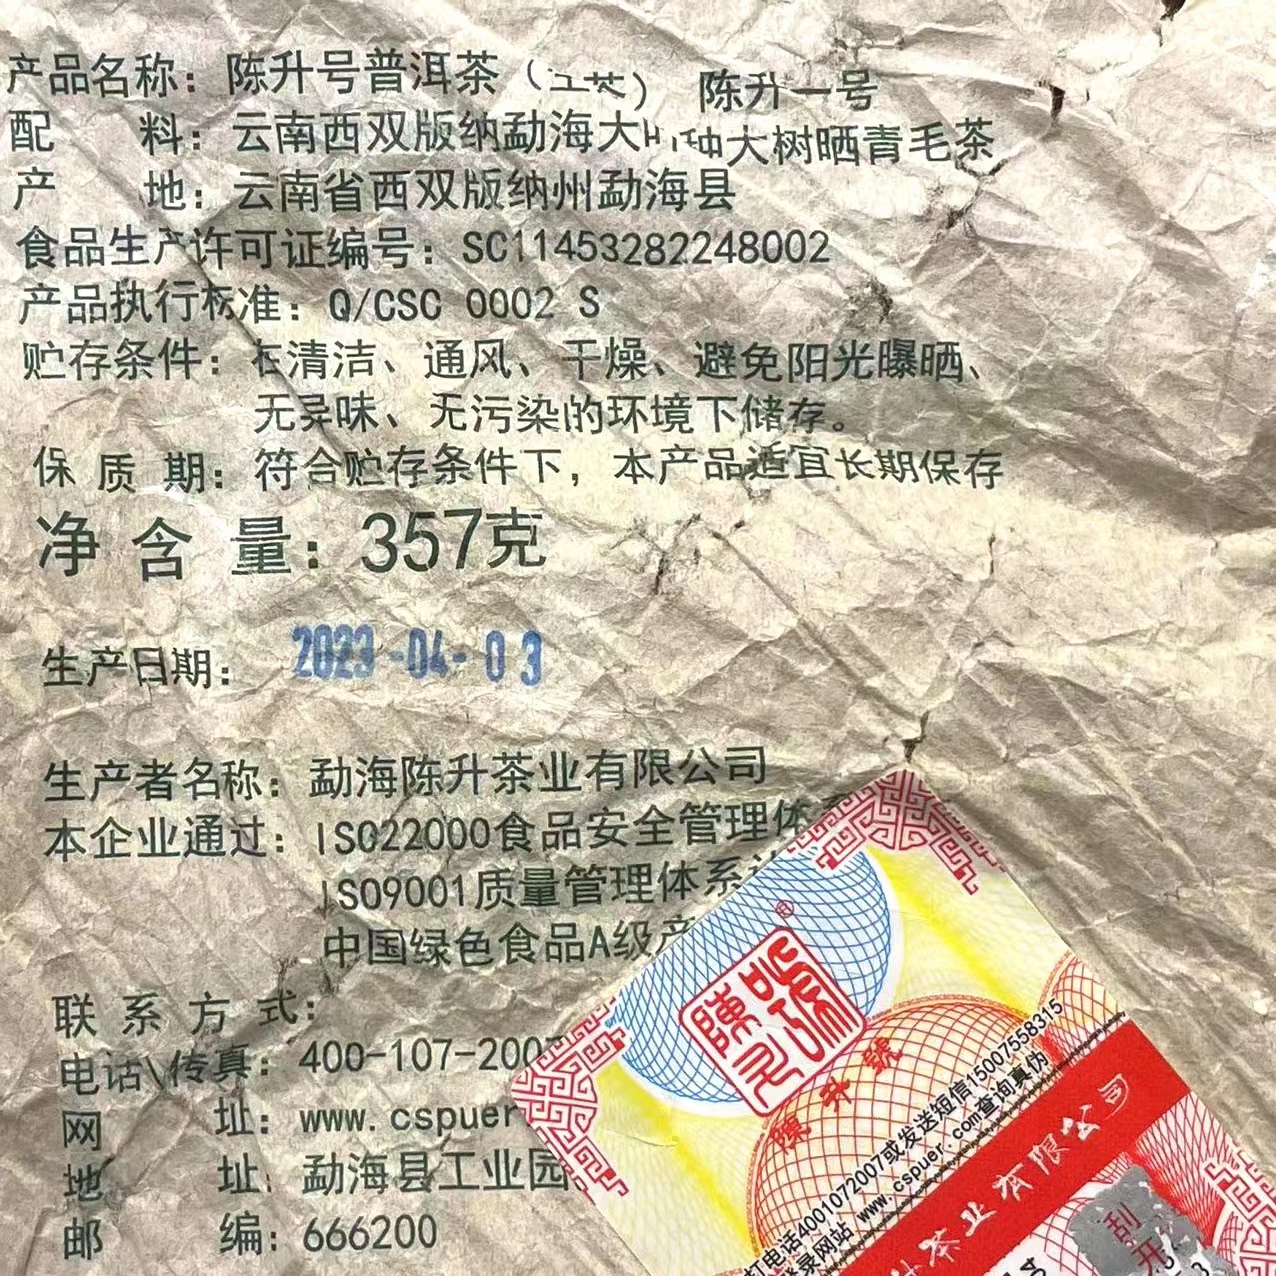 产品名称：陈升号普洱茶（生茶） 陈升一号
配 料：云南西双版纳勐海大叶种大树晒青毛茶
产 地：云南省西双版纳州勐海县
食品生产许可证编号：SC11453282248002
产品执行标准：Q/CSC 0002 S
贮存条件：在清洁、通风、干燥、避免阳光曝晒、
无异味、无污染的环境下储存。
保 质 期：符合贮存条件下，本产品适宜长期保存
净 含 量：357克
生产日期：2023-04-03
生产者名称：勐海陈升茶业有限公司
本企业通过：ISO22000食品安全管理体系
ISO9001质量管理体系
中国绿色食品A级产
联 系 方 式：
电话\传真：400-107-2007
网 址：www.cspuer
地 址：勐海县工业园
邮 编：666200
陳升號
®
陳升號
打电话4001072007或发送短信15007558315
登录网站 www.cspuer.com查询真伪
升茶业有限公司
刮开